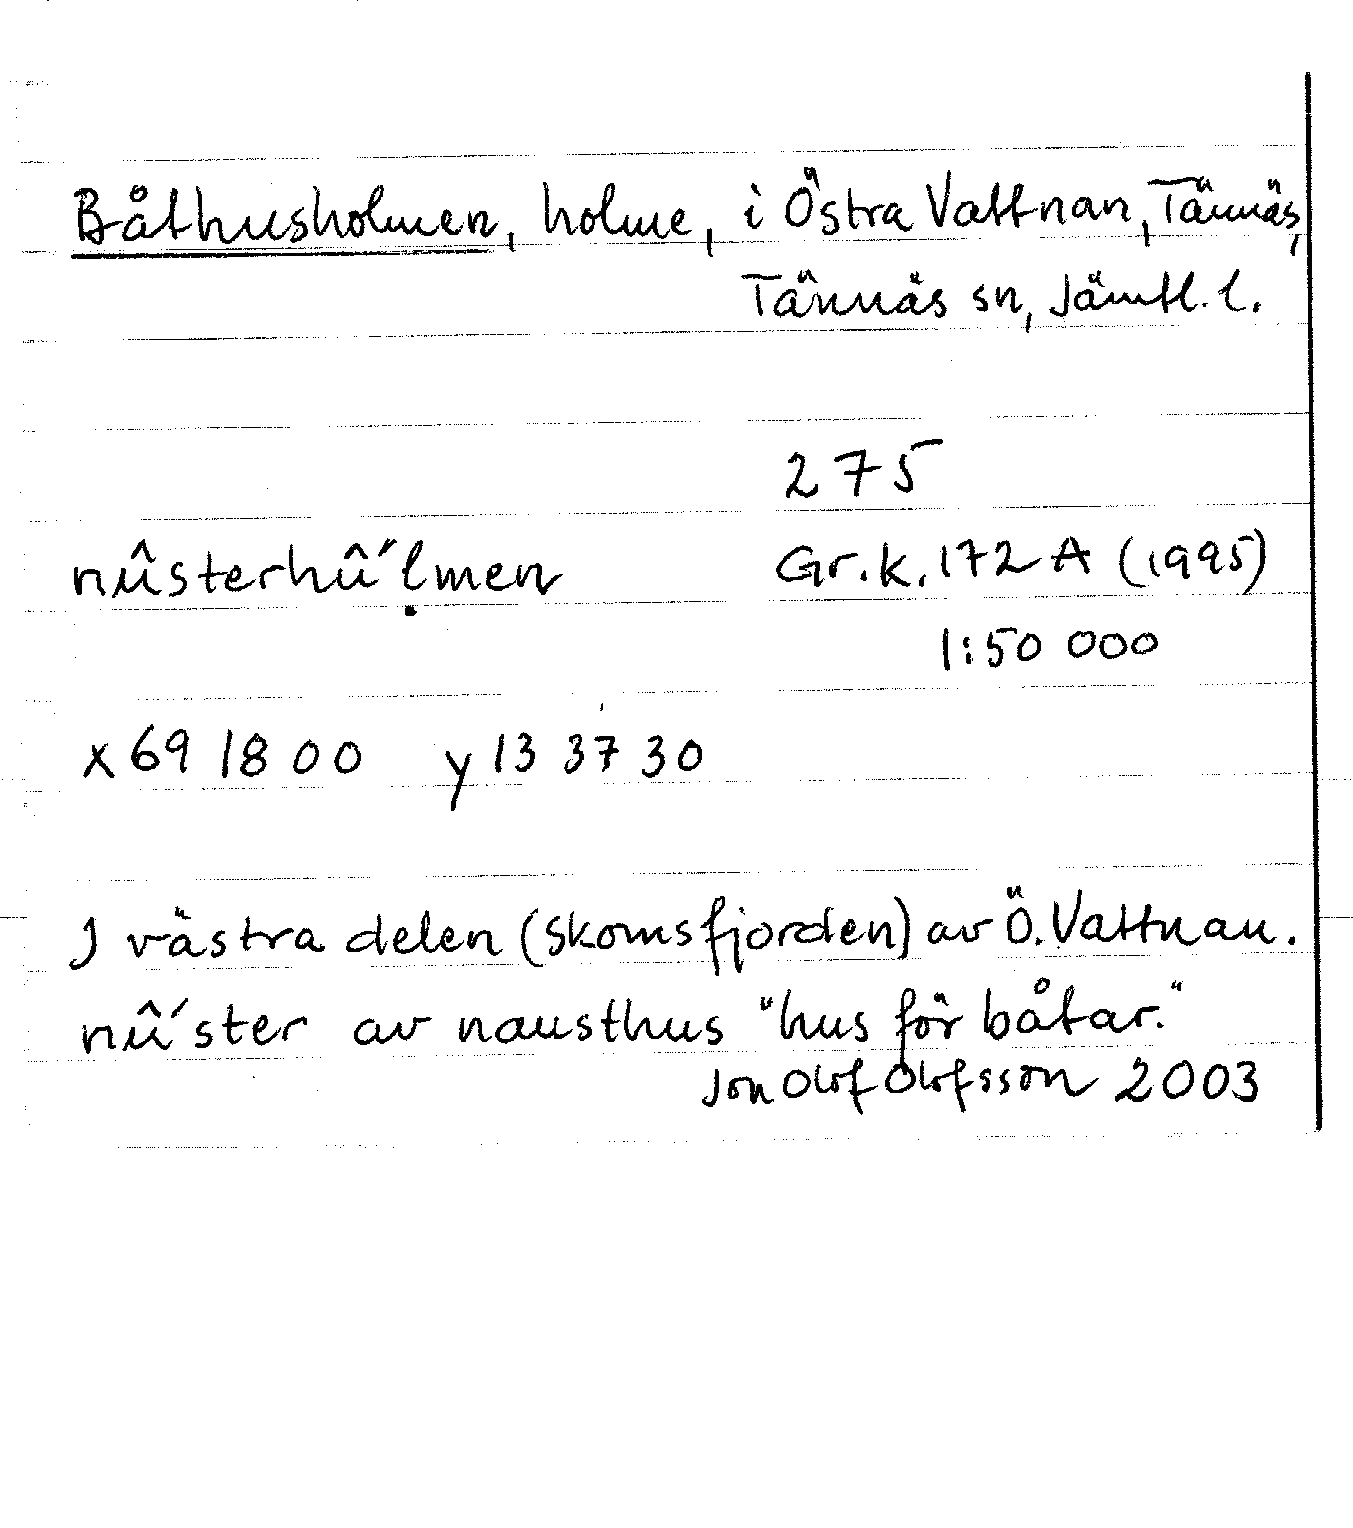 Båthusholmen, holme, i Östra Vattnan, Tännäs,
Tännäs sn, Jämtl. l.
275
nûsterhû´ḷmen Gr.k. 172 A (1995)
1:50 000
x 69 18 00 y 13 37 30
I västra delen (Skomsfjorden) av Ö. Vattnan.
nû´ster av nausthus "hus för båtar."
Jon Olof Olofsson 2003